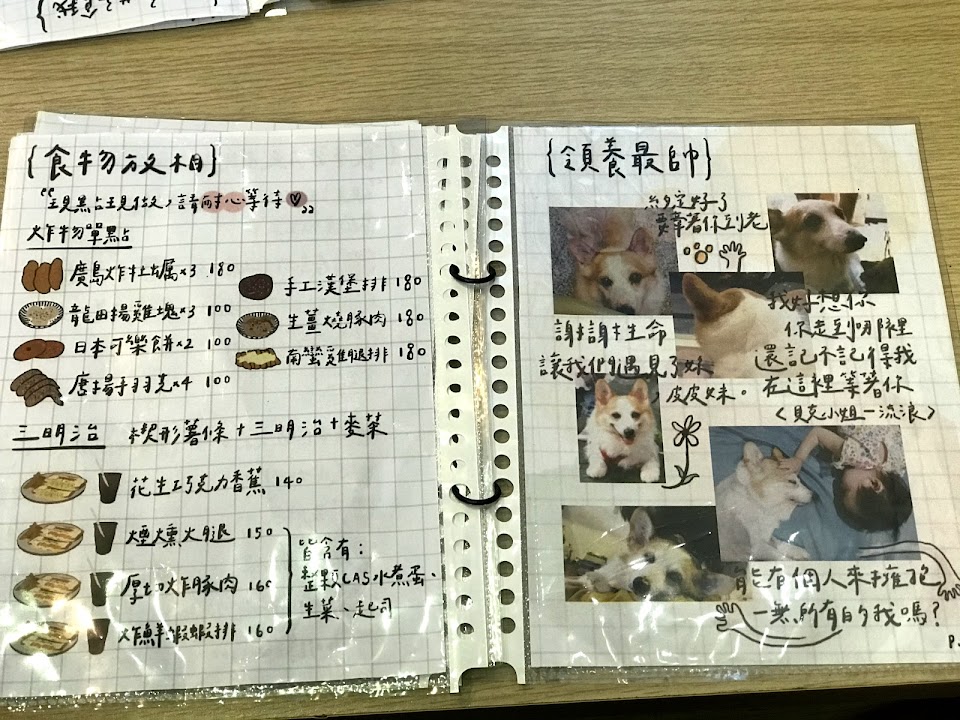 {食物放相}
"現點現做,請耐心等待♡"
炸物單點
廣島炸牡蠣×3 180
龍田揚雞塊×3 100
日本可樂餅×2 100
唐揚手羽先×4 100
手工漢堡排 180
生薑燒豚肉 180
南蠻雞腿排 180
三明治 楔形薯條+三明治+麥茶
花生巧克力香蕉 140
煙燻火腿 150
厚切炸豚肉 160
炸鮮蝦蝦排 160
皆含有:
整顆CAS水煮蛋、
生菜、起司
{領養最帥}
約定好了
要牽著你到老
謝謝牠生命
讓我們遇見了妹
皮皮妹。
我好想你
你走到哪裡
還記不記得我
在這裡等著你
<見克小姐—流浪>
能有個人來擁抱
一無所有的我嗎?
P.